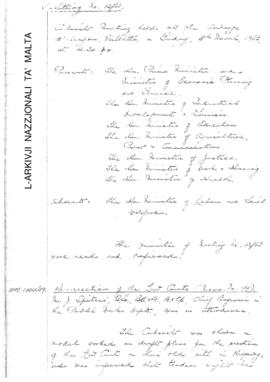 Sitting No. 12/63.
Cabinet Meeting held at the Auberge
d'Aragon Valletta on Friday, 8th March, 1963,
at 4.30 pm.
Present: The Hon. Prime Minister and
Minister of Economic Planning
and Finance.
The Hon Minister of Industrial
Development & Tourism
The Hon Minister of Education
The Hon Minister of Agriculture,
Power & Communications
The Hon Minister of Justice.
The Hon Minister of Works & Housing
The Hon Minister of Health.
Absent: The Hon Minister of Labour and Social
Welfare.
The minutes of Meeting No.
were read and confirmed.
Re-erection of the Law Courts
Mr. J. Spiteri, Chief Engineer in
the Public Works Dept, was in attendance.
The Cabinet was shown a
model worked on draft plans for the erection
of the Law Courts on their old site in Kingsway,
and was informed that tenders might be
L-ARKIVJI NAZZJONALI TA' MALTA